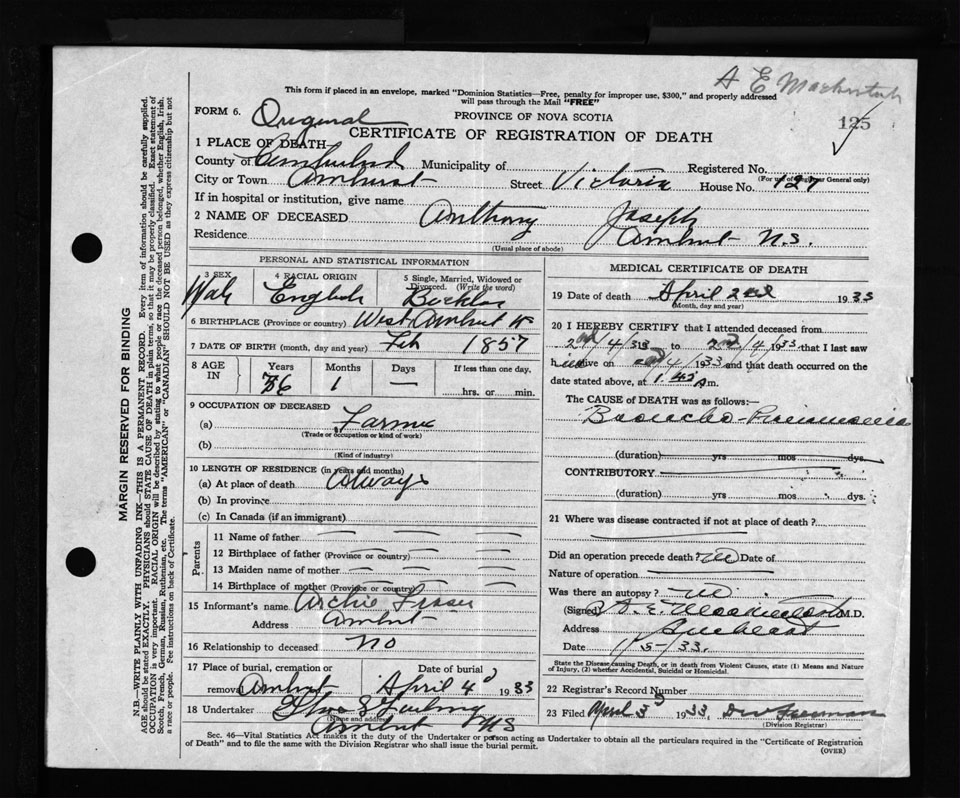 A E Mackintosh
This form if placed in an envelope, marked "Dominion Statistics—Free, penalty for improper use, $300," and properly addressed
will pass through the Mail "FREE"
FORM 6. Original PROVINCE OF NOVA SCOTIA 125
CERTIFICATE OF REGISTRATION OF DEATH
1 PLACE OF DEATH
County of Cumberland Municipality of Registered No.
(For use of Registrar General only)
City or Town Amherst Street Victoria House No. 127
If in hospital or institution, give name
2 NAME OF DECEASED Anthony Joseph
Residence Amherst N.S.
(Usual place of abode)
PERSONAL AND STATISTICAL INFORMATION
3 SEX 4 RACIAL ORIGIN 5 Single, Married, Widowed or
Divorced. (Write the word)
Male English
6 BIRTHPLACE (Province or country) West Amherst
7 DATE OF BIRTH (month, day and year) Feb 1857
8 AGE IN Years Months Days If less than one day,
76 1 — hrs. or min.
9 OCCUPATION OF DECEASED
(a) Farmer
(Trade or occupation or kind of work)
(b)
(Kind of industry)
10 LENGTH OF RESIDENCE (in years and months)
(a) At place of death Always
(b) In province
(c) In Canada (if an immigrant)
Parents
11 Name of father
12 Birthplace of father (Province or country)
13 Maiden name of mother
14 Birthplace of mother (Province or country)
15 Informant's name Archie Fraser
Address Amherst
16 Relationship to deceased NO
17 Place of burial, cremation or Date of burial
removal Amherst April 4 1933
18 Undertaker
(Name and address)
Amherst NS
MEDICAL CERTIFICATE OF DEATH
19 Date of death April 2nd 1933
(Month, day and year)
20 I HEREBY CERTIFY that I attended deceased from
/4/33 to 2nd/4/1933 that I last saw
h alive on /4/1933 and that death occurred on the
date stated above, at m.
The CAUSE OF DEATH was as follows:
Broncho-Pneumonia
(duration) yrs mos dys.
CONTRIBUTORY
(duration) yrs mos dys.
21 Where was disease contracted if not at place of death?
Did an operation precede death? No Date of
Nature of operation
Was there an autopsy? No
(Signed) A. E. Mackintosh M.D.
Address Amherst
Date /5/33.
State the Disease causing Death, or in death from Violent Causes, state (1) Means and Nature
of Injury, (2) whether Accidental, Suicidal or Homicidal.
22 Registrar's Record Number
23 Filed April 3 1933.
(Division Registrar)
Sec. 46—Vital Statistics Act makes it the duty of the Undertaker or person acting as Undertaker to obtain all the particulars required in the "Certificate of Registration
of Death" and to file the same with the Division Registrar who shall issue the burial permit.
(OVER)
MARGIN RESERVED FOR BINDING
N.B.—WRITE PLAINLY WITH UNFADING INK—THIS IS A PERMANENT RECORD. Every item of information should be carefully supplied.
AGE should be stated EXACTLY. PHYSICIANS should STATE CAUSE OF DEATH in plain terms, so that it may be properly classified. Exact statement of
OCCUPATION is very important. RACIAL ORIGIN will be described by stating to what people or race the deceased person belonged, whether English, Irish,
Scotch, French, German, Russian, Ruthenian, etc. The terms "AMERICAN" or "CANADIAN" SHOULD NOT BE USED as they express citizenship but not
a race or people. Fee instructions on back of Certificate.